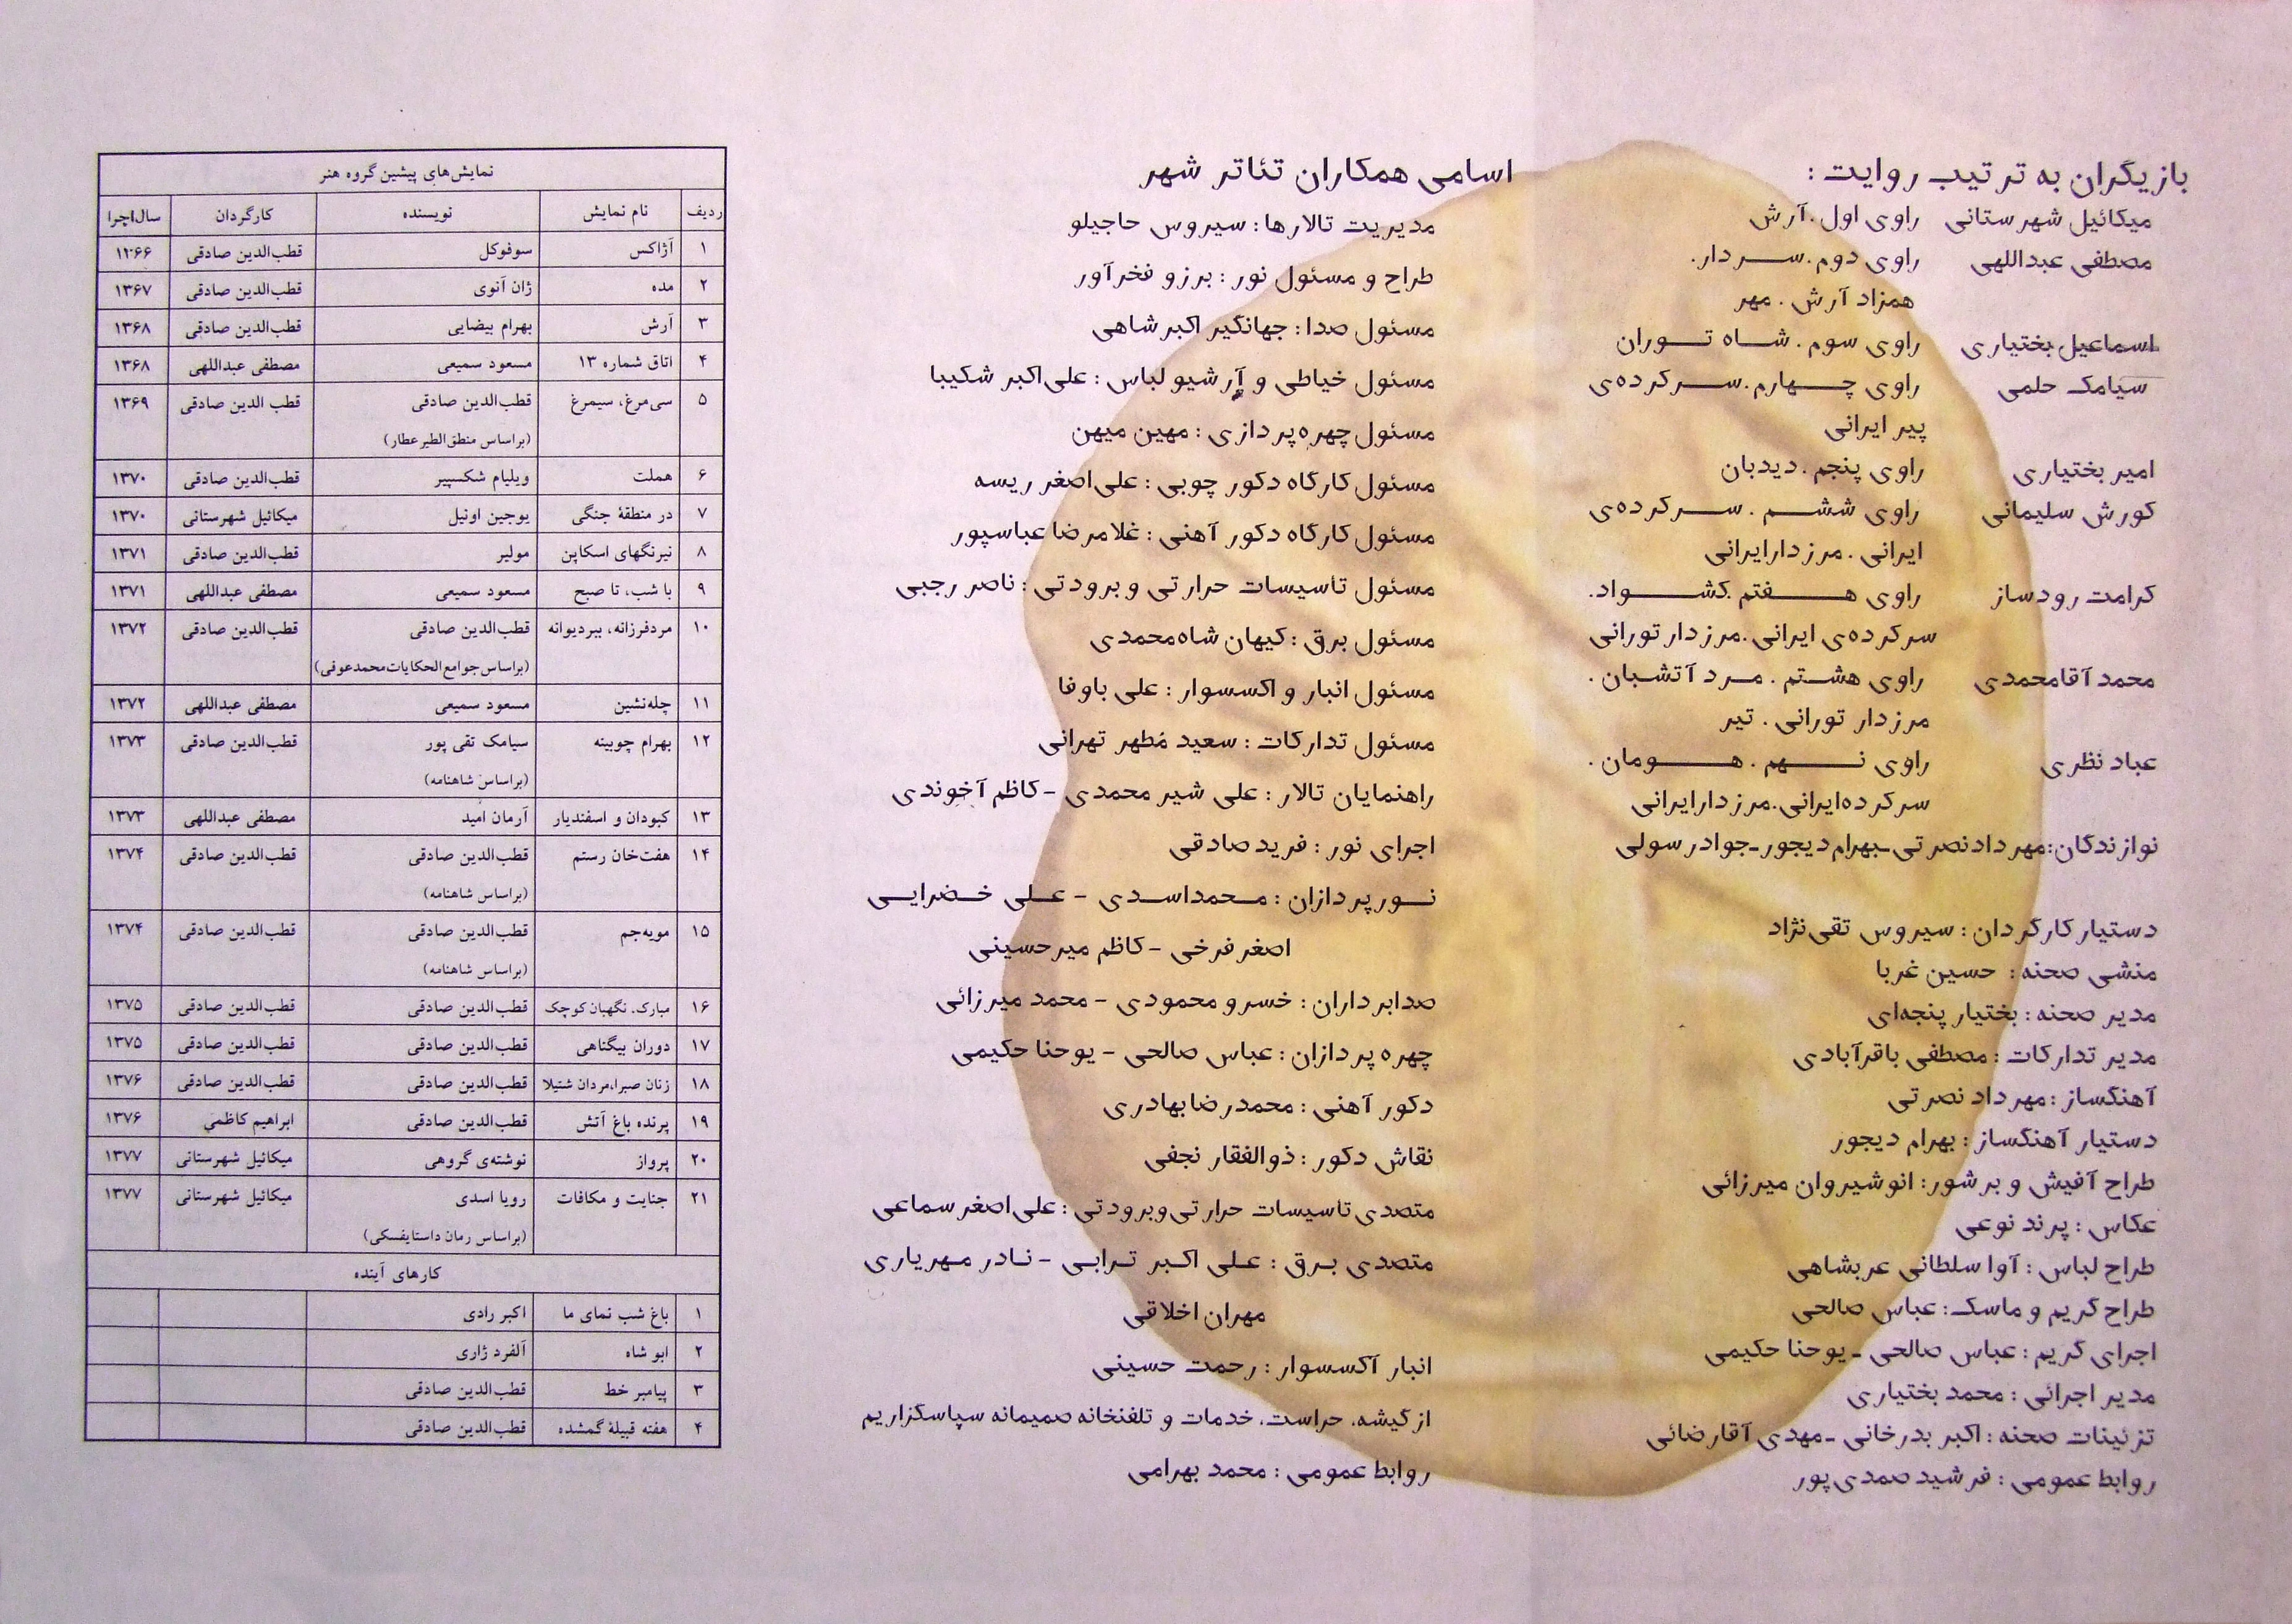 بازیگران به ترتیب روایت :
میکائیل شهرستانی راوی اول . آرش
مصطفی عبداللهی راوی دوم . سردار .
همزاد آرش . مهر
اسماعیل بختیاری راوی سوم . شاه توران
سیامک حلمی راوی چهارم . سرکرده‌ی
پیر ایرانی
امیر بختیاری راوی پنجم . دیدبان
کورش سلیمانی راوی ششم . سرکرده‌ی
ایرانی . مرزدار ایرانی
کرامت رودساز راوی هفتم . کشواد .
سرکرده‌ی ایرانی . مرزدار تورانی
محمد آقامحمدی راوی هشتم . مرد آتشبان .
مرزدار تورانی . تیر
عباد نظری راوی نهم . هومان .
سرکرده ایرانی . مرزدار ایرانی
نوازندگان : مهرداد نصرتی - بهرام دیجور - جواد رسولی
دستیار کارگردان : سیروس تقی‌نژاد
منشی صحنه : حسین غربا
مدیر صحنه : بختیار پنجه‌ای
مدیر تدارکات : مصطفی باقرآبادی
آهنگساز : مهرداد نصرتی
دستیار آهنگساز : بهرام دیجور
طراح آفیش و برشور : انوشیروان میرزائی
عکاس : پرند نوعی
طراح لباس : آوا سلطانی عربشاهی
طراح گریم و ماسک : عباس صالحی
اجرای گریم : عباس صالحی - یوحنا حکیمی
مدیر اجرائی : محمد بختیاری
تزئینات صحنه : اکبر بدرخانی - مهدی آقارضائی
روابط عمومی : فرشید صمدی‌پور
اسامی همکاران تئاتر شهر
مدیریت تالارها : سیروس حاجیلو
طراح و مسئول نور : برزو فخرآور
مسئول صدا : جهانگیر اکبرشاهی
مسئول خیاطی و آرشیو لباس : علی‌اکبر شکیبا
مسئول چهره‌پردازی : مهین میهن
مسئول کارگاه دکور چوبی : علی‌اصغر ریسه
مسئول کارگاه دکور آهنی : غلامرضا عباسپور
مسئول تاسیسات حرارتی و برودتی : ناصر رجبی
مسئول برق : کیهان شاه‌محمدی
مسئول انبار و اکسسوار : علی باوفا
مسئول تدارکات : سعید مُطهر تهرانی
راهنمایان تالار : علی شیرمحمدی - کاظم آخوندی
اجرای نور : فرید صادقی
نورپردازان : محمداسدی - علی خضرایی
اصغر فرخی - کاظم میرحسینی
صدابرداران : خسرو محمودی - محمد میرزائی
چهره پردازان : عباس صالحی - یوحنا حکیمی
دکور آهنی : محمدرضا بهادری
نقاش دکور : ذوالفقار نجفی
متصدی تاسیسات حرارتی و برودتی : علی‌اصغر سماعی
متصدی برق : علی اکبر ترابی - نادر مهریاری
مهران اخلاقی
انبار آکسسوار : رحمت حسینی
از گیشه، حراست، خدمات و تلفنخانه صمیمانه سپاسگزاریم
روابط عمومی : محمد بهرامی
نمایش‌های پیشین گروه هنر
ردیف نام نمایش نویسنده کارگردان سال اجرا
۱ آژاکس سوفوکل قطب‌الدین صادقی ۱۳۶۶
۲ مده ژان آنوی قطب‌الدین صادقی ۱۳۶۷
۳ آرش بهرام بیضایی قطب‌الدین صادقی ۱۳۶۸
۴ اتاق شماره ۱۳ مسعود سمیعی مصطفی عبداللهی ۱۳۶۸
۵ سی‌مرغ، سیمرغ قطب‌الدین صادقی قطب الدین صادقی ۱۳۶۹
(براساس منطق‌الطیر عطار)
۶ هملت ویلیام شکسپیر قطب‌الدین صادقی ۱۳۷۰
۷ در منطقهٔ جنگی یوجین اونیل میکائیل شهرستانی ۱۳۷۰
۸ نیرنگهای اسکاپن مولیر قطب‌الدین صادقی ۱۳۷۱
۹ با شب، تا صبح مسعود سمیعی مصطفی عبداللهی ۱۳۷۱
۱۰ مردفرزانه، ببردیوانه قطب‌الدین صادقی قطب‌الدین صادقی ۱۳۷۲
(براساس جوامع‌الحکایات محمدعوفی)
۱۱ چله‌نشین مسعود سمیعی مصطفی عبداللهی ۱۳۷۲
۱۲ بهرام چوبینه سیامک تقی پور قطب‌الدین صادقی ۱۳۷۳
(براساس شاهنامه)
۱۳ کبودان و اسفندیار آرمان امید مصطفی عبداللهی ۱۳۷۳
۱۴ هفت‌خان رستم قطب‌الدین صادقی قطب‌الدین صادقی ۱۳۷۴
(براساس شاهنامه)
۱۵ مویه‌جم قطب‌الدین صادقی قطب‌الدین صادقی ۱۳۷۴
(براساس شاهنامه)
۱۶ مبارک، نگهبان کوچک قطب‌الدین صادقی قطب‌الدین صادقی ۱۳۷۵
۱۷ دوران بیگناهی قطب‌الدین صادقی قطب‌الدین صادقی ۱۳۷۵
۱۸ زنان صبرا، مردان شتیلا قطب‌الدین صادقی قطب‌الدین صادقی ۱۳۷۶
۱۹ پرنده باغ آتش قطب‌الدین صادقی ابراهیم کاظمی ۱۳۷۶
۲۰ پرواز نوشته‌ی گروهی میکائیل شهرستانی ۱۳۷۷
۲۱ جنایت و مکافات رویا اسدی میکائیل شهرستانی ۱۳۷۷
(براساس رمان داستایفسکی)
کارهای آینده
۱ باغ شب نمای ما اکبر رادی
۲ ابو شاه آلفرد ژاری
۳ پیامبر خط قطب‌الدین صادقی
۴ هفته قبیلهٔ گمشده قطب‌الدین صادقی